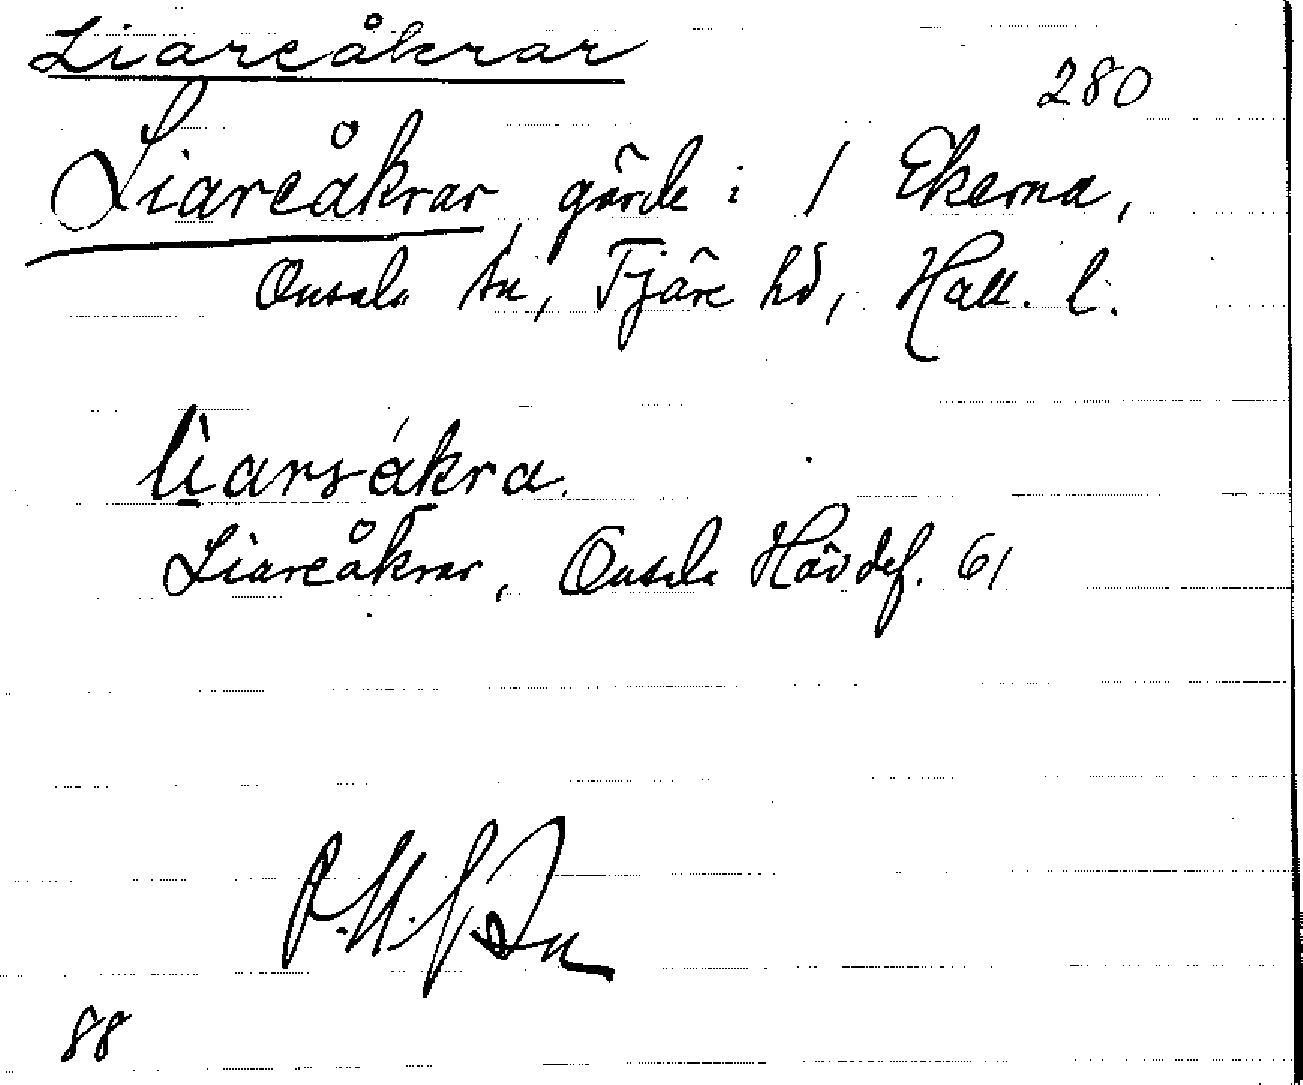 Liareåkrar
280
Liareåkrar, gärde i 1 Ekerna,
Onsala sn, Fjäre hd, Hall. l.
liarsåkra.
Liareåkrar, Onsala Hävdef. 61
88